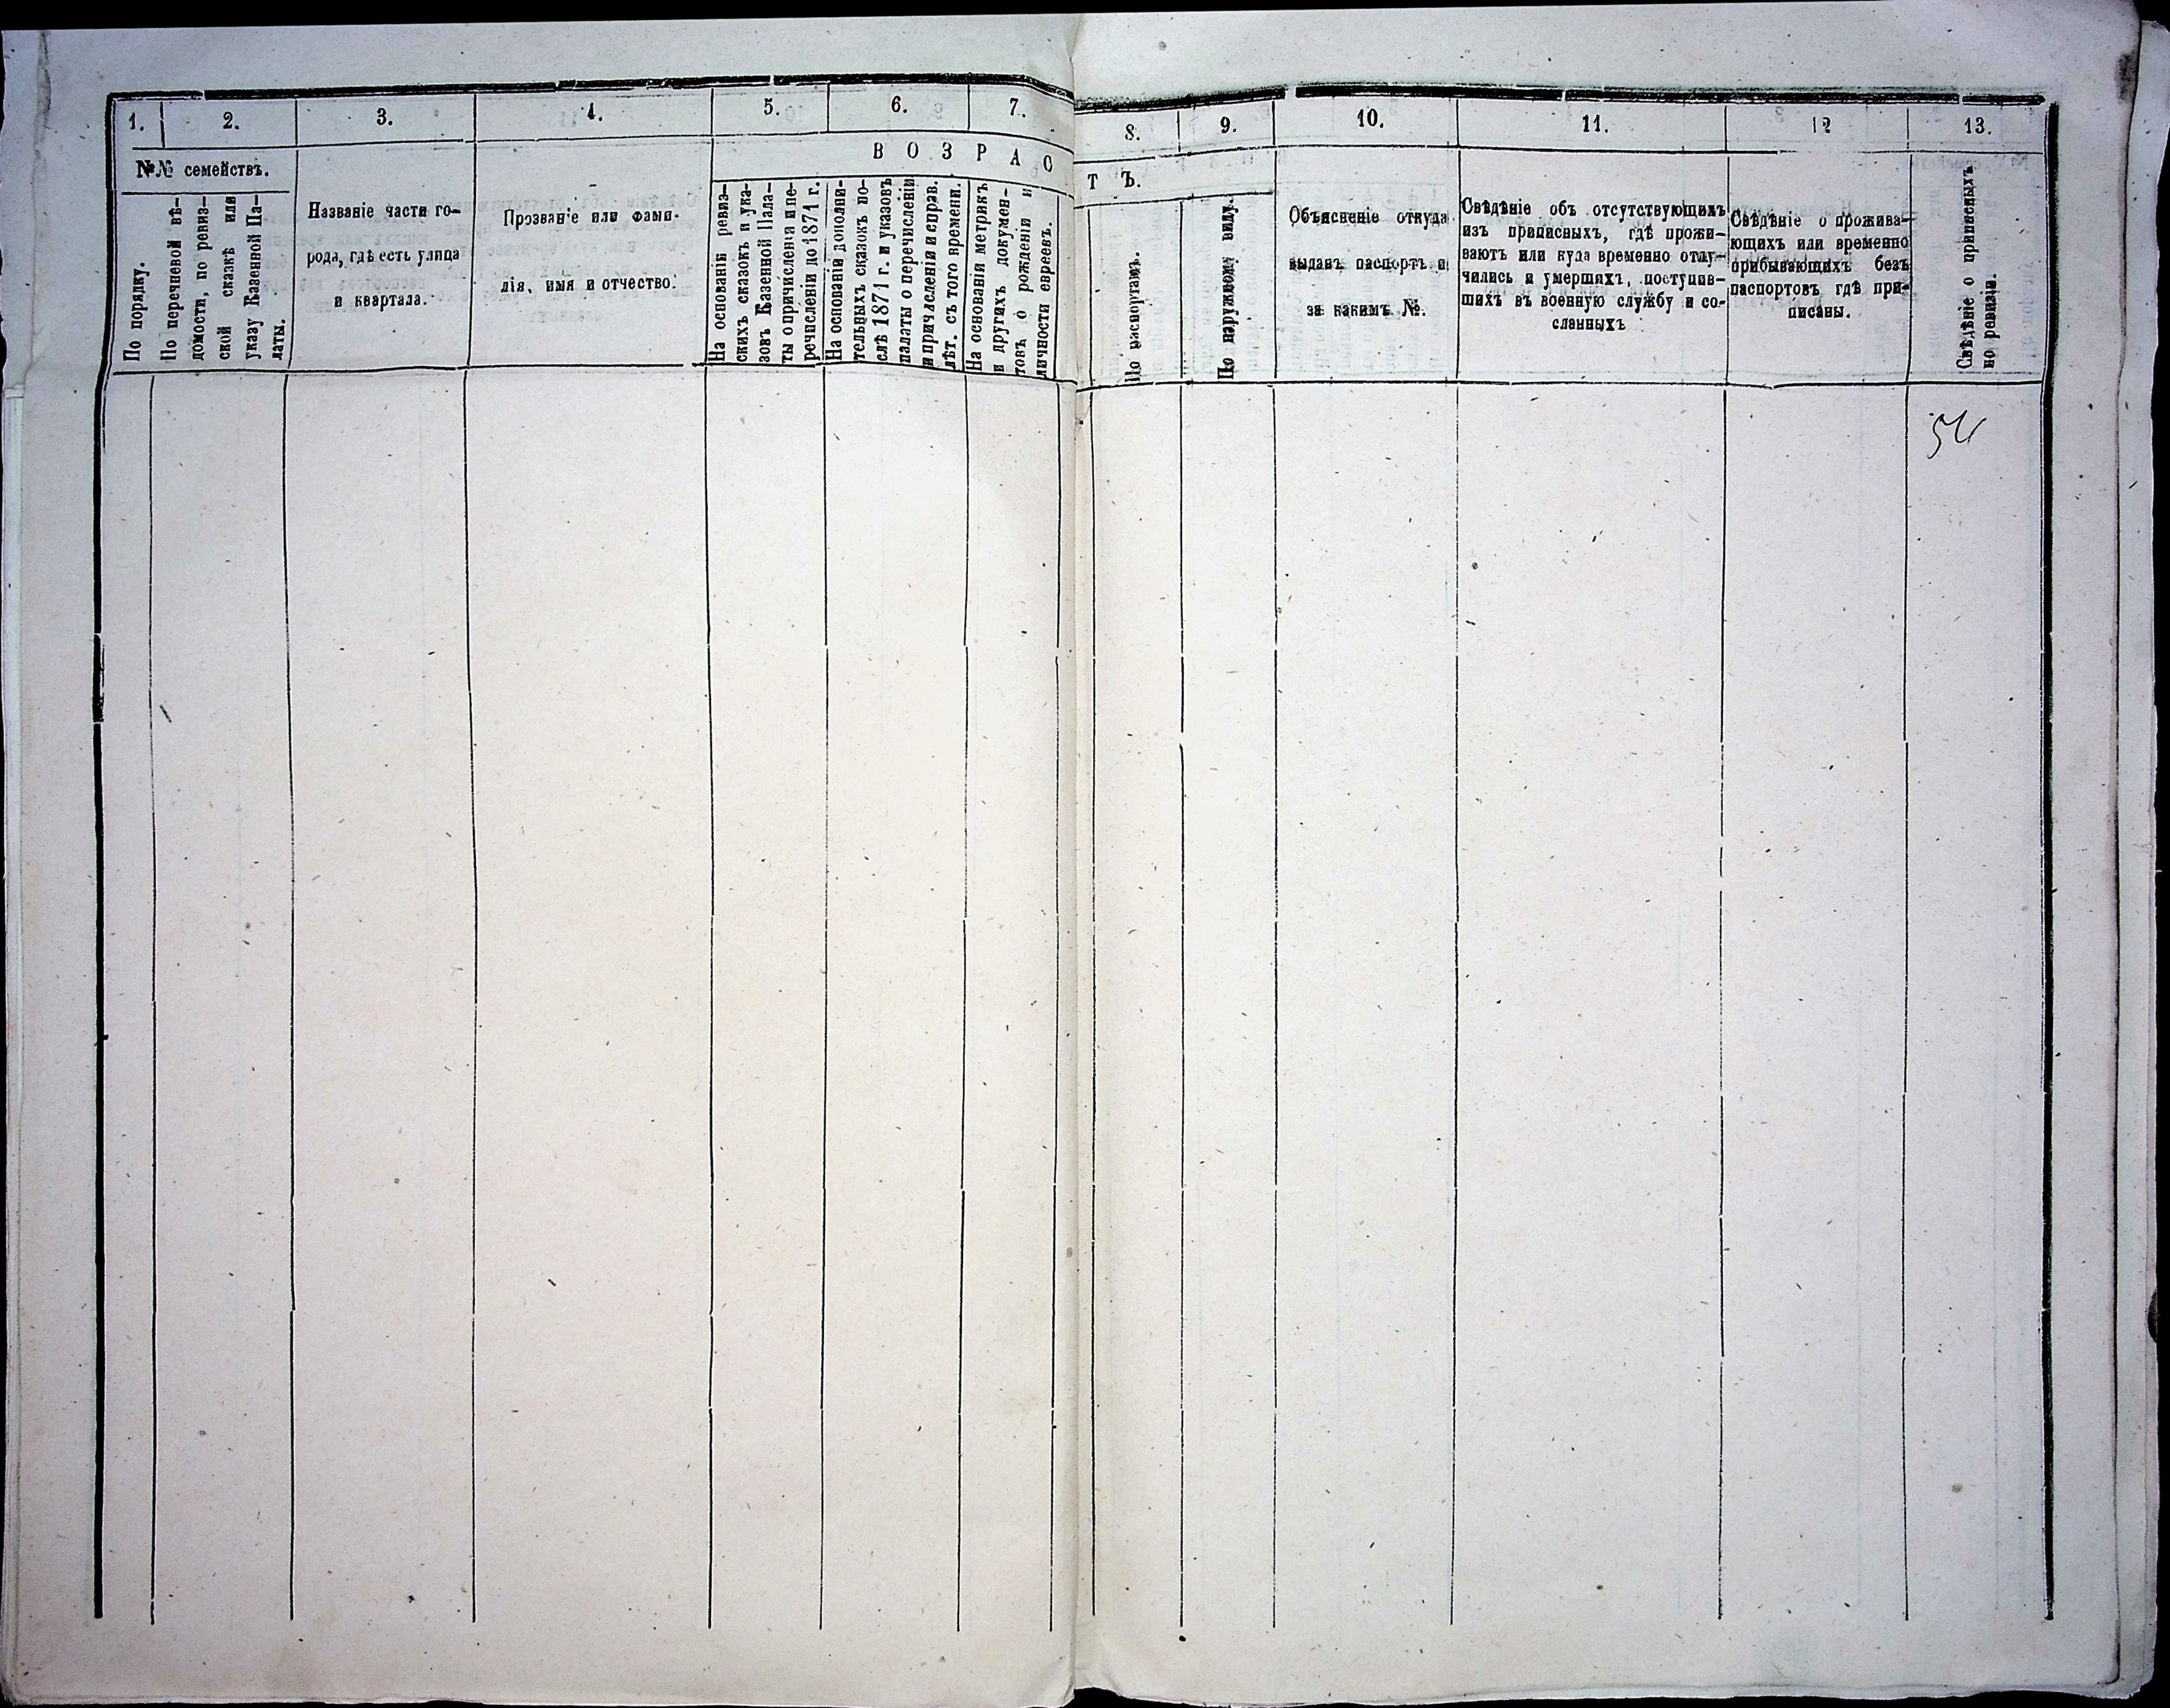 1.
2.
3.
4.
5.
6.
7.
8.
9.
10.
11.
12
13.
№№ семействъ.
ВОЗРАС
ТЪ.
По порядку.
По перечневой вѣ-
домости, по ревиз-
ской сказкѣ или
указу Казенной Па-
латы.
Названіе части го-
рода, гдѣ есть улица
и квартала.
Прозваніе или фами-
лія, имя и отчество.
На основаніи ревиз-
скихъ сказокъ и ука-
зовъ Казенной Пала-
ты о причисленіи и пе-
речисленіи до 1871 г.
На основаніи дополни-
тельныхъ сказокъ по-
слѣ 1871 г. и указовъ
палаты о перечисленіи
и причисленіи и справ.
лѣт. съ того времени.
На основаніи метрикъ
и другихъ докумен-
товъ о рожденіи и
личности евреевъ.
По паспортамъ.
По наружному виду.
Объясненіе откуда
выданъ паспортъ и
за какимъ №.
Свѣдѣніе объ отсутствующихъ
изъ приписныхъ, гдѣ прожи-
ваютъ или куда временно отлу-
чились и умершихъ, поступив-
шихъ въ военную службу и со-
сланныхъ
Свѣдѣніе о прожива-
ющихъ или временно
прибывающихъ безъ
паспортовъ гдѣ при-
писаны.
Свѣдѣніе о приписныхъ
по ревизіи.